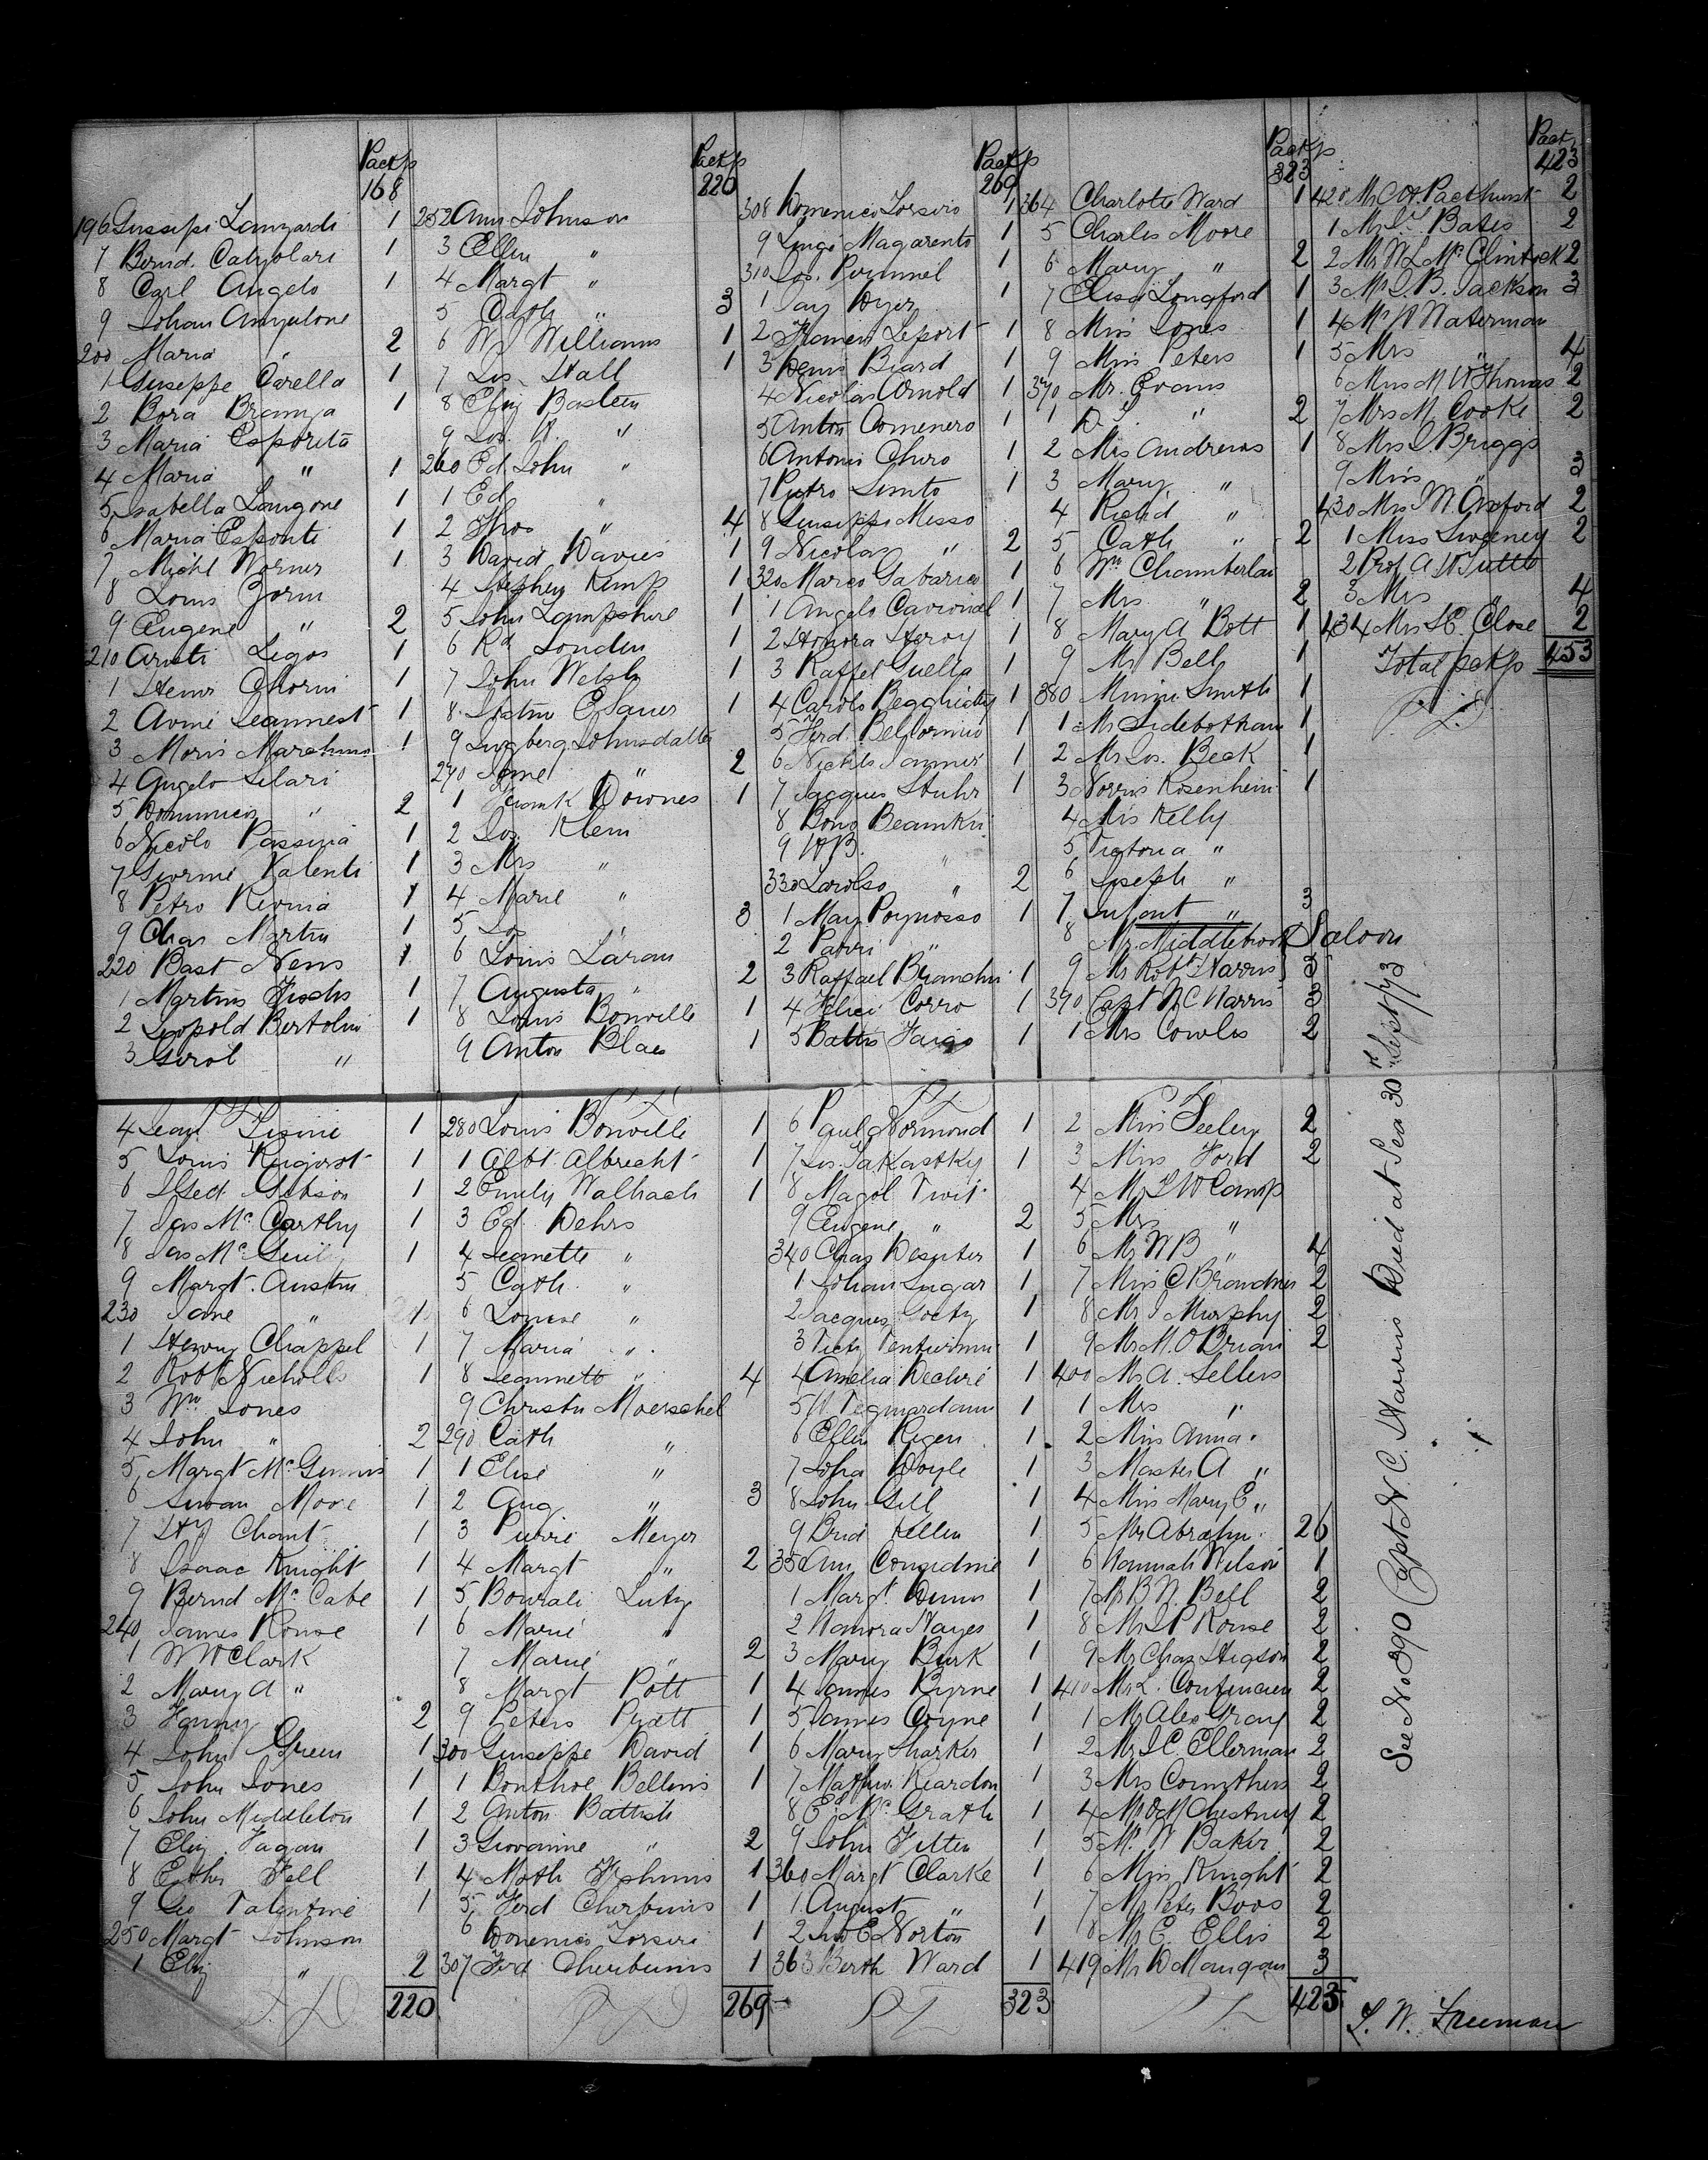 Packp
168
196 Guissipi Lanzardi 1
7 Bernd. Catyolari 1
8 Carl Angelo 1
9 Johan Angulone
200 Maria " 2
1 Guseppe Carella 1
2 Bora Bramya 1
3 Maria Esporita
4 Maria " 1
5 Isabella Langone 1
6 Maria Esponti 1
7 Michl Worner 1
8 Louis Zorn
9 Eugene " 2
210 Aristi Legos 1
1 Henri Chorin 1
2 Avmé Jeannest 1
3 Moris Marchino 1
4 Angelo Silari
5 Domminico " 2
6 Nicolo Passina 1
7 Giormi Valenti 1
8 Petro Revnia 1
9 Chas Martin 1
220 Bast Nens 1
1 Martins Fischs 1
2 Leopold Bertolini 1
3 Girol "
4 Jean Lisine 1
5 Louis Rugerst 1
6 Gibson 1
7 Jas Mc Carthy 1
8 Jas Mc 1
9 Margt. Austin
230 Jane " 1
1 Henry Chappel
2 Robt Nicholls 1
3 Wm Jones
4 John " 2
5 Margt Mc Ginnis 1
6 Susan Moore 1
7 Hy Chant 1
8 Isaac Knight 1
9 Bernd Mc Cabe 1
240 James Rouse 1
1 W W Clark
2 Mary A "
3 Fanny 2
4 John Green 1
5 John Jones 1
6 John Middleton 1
7 Eliz. Fagan 1
8 Esther Fell 1
9 Geo Valentine 1
250 Margt Johnson
1 Eliz " 2
220
Packp
220
252 Ann Johnson
3 Ellen "
4 Margt "
5 Cath " 3
6 W Williams 1
7 Jas. Hall 1
8 Eliz Basteen
9 Jos. W. "
260 Ed. John "
1 Ed "
2 Thos " 4
3 David Davies 1
4 Stephen Kemp 1
5 John Lampshire 1
6 Rd Londen 1
7 John Welsh 1
8 Esauer 1
9 Ingberg Johnsdatter
270 Jame " 2
1 Frank Downes 1
2 Jos. Klein
3 Mrs "
4 Marie "
5 Jos " 3
6 Louis Laran
7 Augusta " 2
8 Louis Bonville 1
9 Anton Blaes 1
280 Louis Bonville 1
1 Albt. Albrecht 1
2 Emily Walhach 1
3 Ed. Dehrs
4 Jeanette "
5 Cath. "
6 Louise "
7 Maria "
8 Jeannett " 4
9 Christn Moerschel
290 Cath "
1 Elise "
2 Aug " 3
3 Pierre Meyer
4 Margt " 2
5 Bourali Lutz
6 Marie "
7 Marie " 2
8 Margt Pott 1
9 Peters Pratt 1
300 Guiseppe David 1
1 Bonthol Bellinis 1
2 Anton Battisti
3 Giovanine " 2
4 Math Fishinis 1
5 Ferd Cherbinis 1
6 Domenico Lorsiri 1
307 Ferd Cherbinis 1
269
Packp
269
308 Domenico Lorsirio 1
9 Luigi Magarento 1
310 Jos. Rummel 1
1 Jay Dyer 1
2 Leport 1
3 Denis Biard 1
4 Nicolas Arnold 1
5 Anton Comenero 1
6 Antonio Chiro 1
7 Pietro Simto 1
8 Giuseppi Messo
9 Nicolas " 2
320 Marco Gabaria 1
1 Angelo Carional 1
2 Honora Heroy 1
3 Raffel Guella 1
4 Carolo Begghietty 1
5 Ferd Bellormio 1
6 Nickls Sommer 1
7 Jacques Stuhr 1
8 Bono Beamkii
9 W B. "
330 Larolso " 2
1 May Poynosso 1
2 Pavri "
3 Raffael Bianchii 1
4 Felici Corro 1
5 Battis Faigo 1
6 Paul Normond 1
7 Jos. Jakastky 1
8 Magol Twit.
9 Eugene " 2
340 Chas Desuter 1
1 Johan Lugar 1
2 Jacques Goetz 1
3 Victs Venturinni 1
4 Amelia Dechré 1
5 W. Tegnardann 1
6 Ellen Regen 1
7 John Doyle 1
8 John Gill 1
9 Brid Kellen 1
350 Ann Considine 1
1 Margt. Dunn 1
2 Hanora Hayes 1
3 Mary Burk 1
4 James Byrne 1
5 James Coyne 1
6 Mary Sharkir 1
7 Mathew Reardon 1
8 Ed. Mc Grath 1
9 John Fitten 1
360 Margt Clarke 1
1 August " 1
2 Jno E Norton 1
363 Berth Ward 1
323
Packp
323
364 Charlotte Ward 1
5 Charles Moore
6 Mary " 2
7 Elisa Longford 1
8 Miss Jones 1
9 Miss Peters 1
370 Mr. Evans
1 D. S. " 2
2 Mrs Andrews 1
3 Mary "
4 Richd "
5 Cath " 2
6 Wm Chamberlai
7 Mrs " 2
8 Mary A Bott 1
9 Mr Bell 1
380 Minnie Smith 1
1 Mr Sidebotham 1
2 Mr Jos. Beck 1
3 Norris Rosenheim 1
4 Mis Kelly
5 Victoria "
6 Joseph "
7 Infant " 3
8 Mr. Middlebrook Saloon
9 Mr Robt Harris 3
390 Capt N C Harris 3
1 Mrs Cowles 2
2 Miss Seeley 2
3 Miss Ford 2
4 Mr L W Camp
5 Mrs "
6 Mr W B " 4
7 Miss C Brandnis 2
8 Mr J Murphy 2
9 Mr M. O Brian 2
400 Mr A. Sellers
1 Mrs "
2 Miss Anna "
3 Master A "
4 Miss Mary E "
5 Mr Abrahm. 26
6 Hannah Wilson 1
7 Mr B N. Bell 2
8 Mr J P Rouse 2
9 Mr Chas Higson 2
410 Mr L. Contincien 2
1 Mr Alex Gray 2
2 Mr J C. Ellerman 2
3 Mrs Corinthers 2
4 Mr D McChestney 2
5 Mr. W Baker 2
6 Miss Knight 2
7 Mr Peter Boos 2
8 Mr E. Ellis 2
419 Mr D Mangan 3
423
Packp
423
420 Mr C H. Packhurst 2
1 Mr Bates 2
2 Mr W L Mc Clintock 2
3 Mr J. B. Jackson 3
4 Mr W Waterman
5 Mrs " 4
6 Miss M W Thomas 2
7 Mrs M. Cooke 2
8 Mrs J Briggs
9 Miss " 3
430 Mrs M Axford 2
1 Miss Sweeney 2
2 Prof. A W Tuttle
3 Mrs " 4
434 Mrs H C. Close 2
Total packp 453
See No 390 Capt N. C. Harris Died at Sea 30th Sept/73
L. W. Freeman